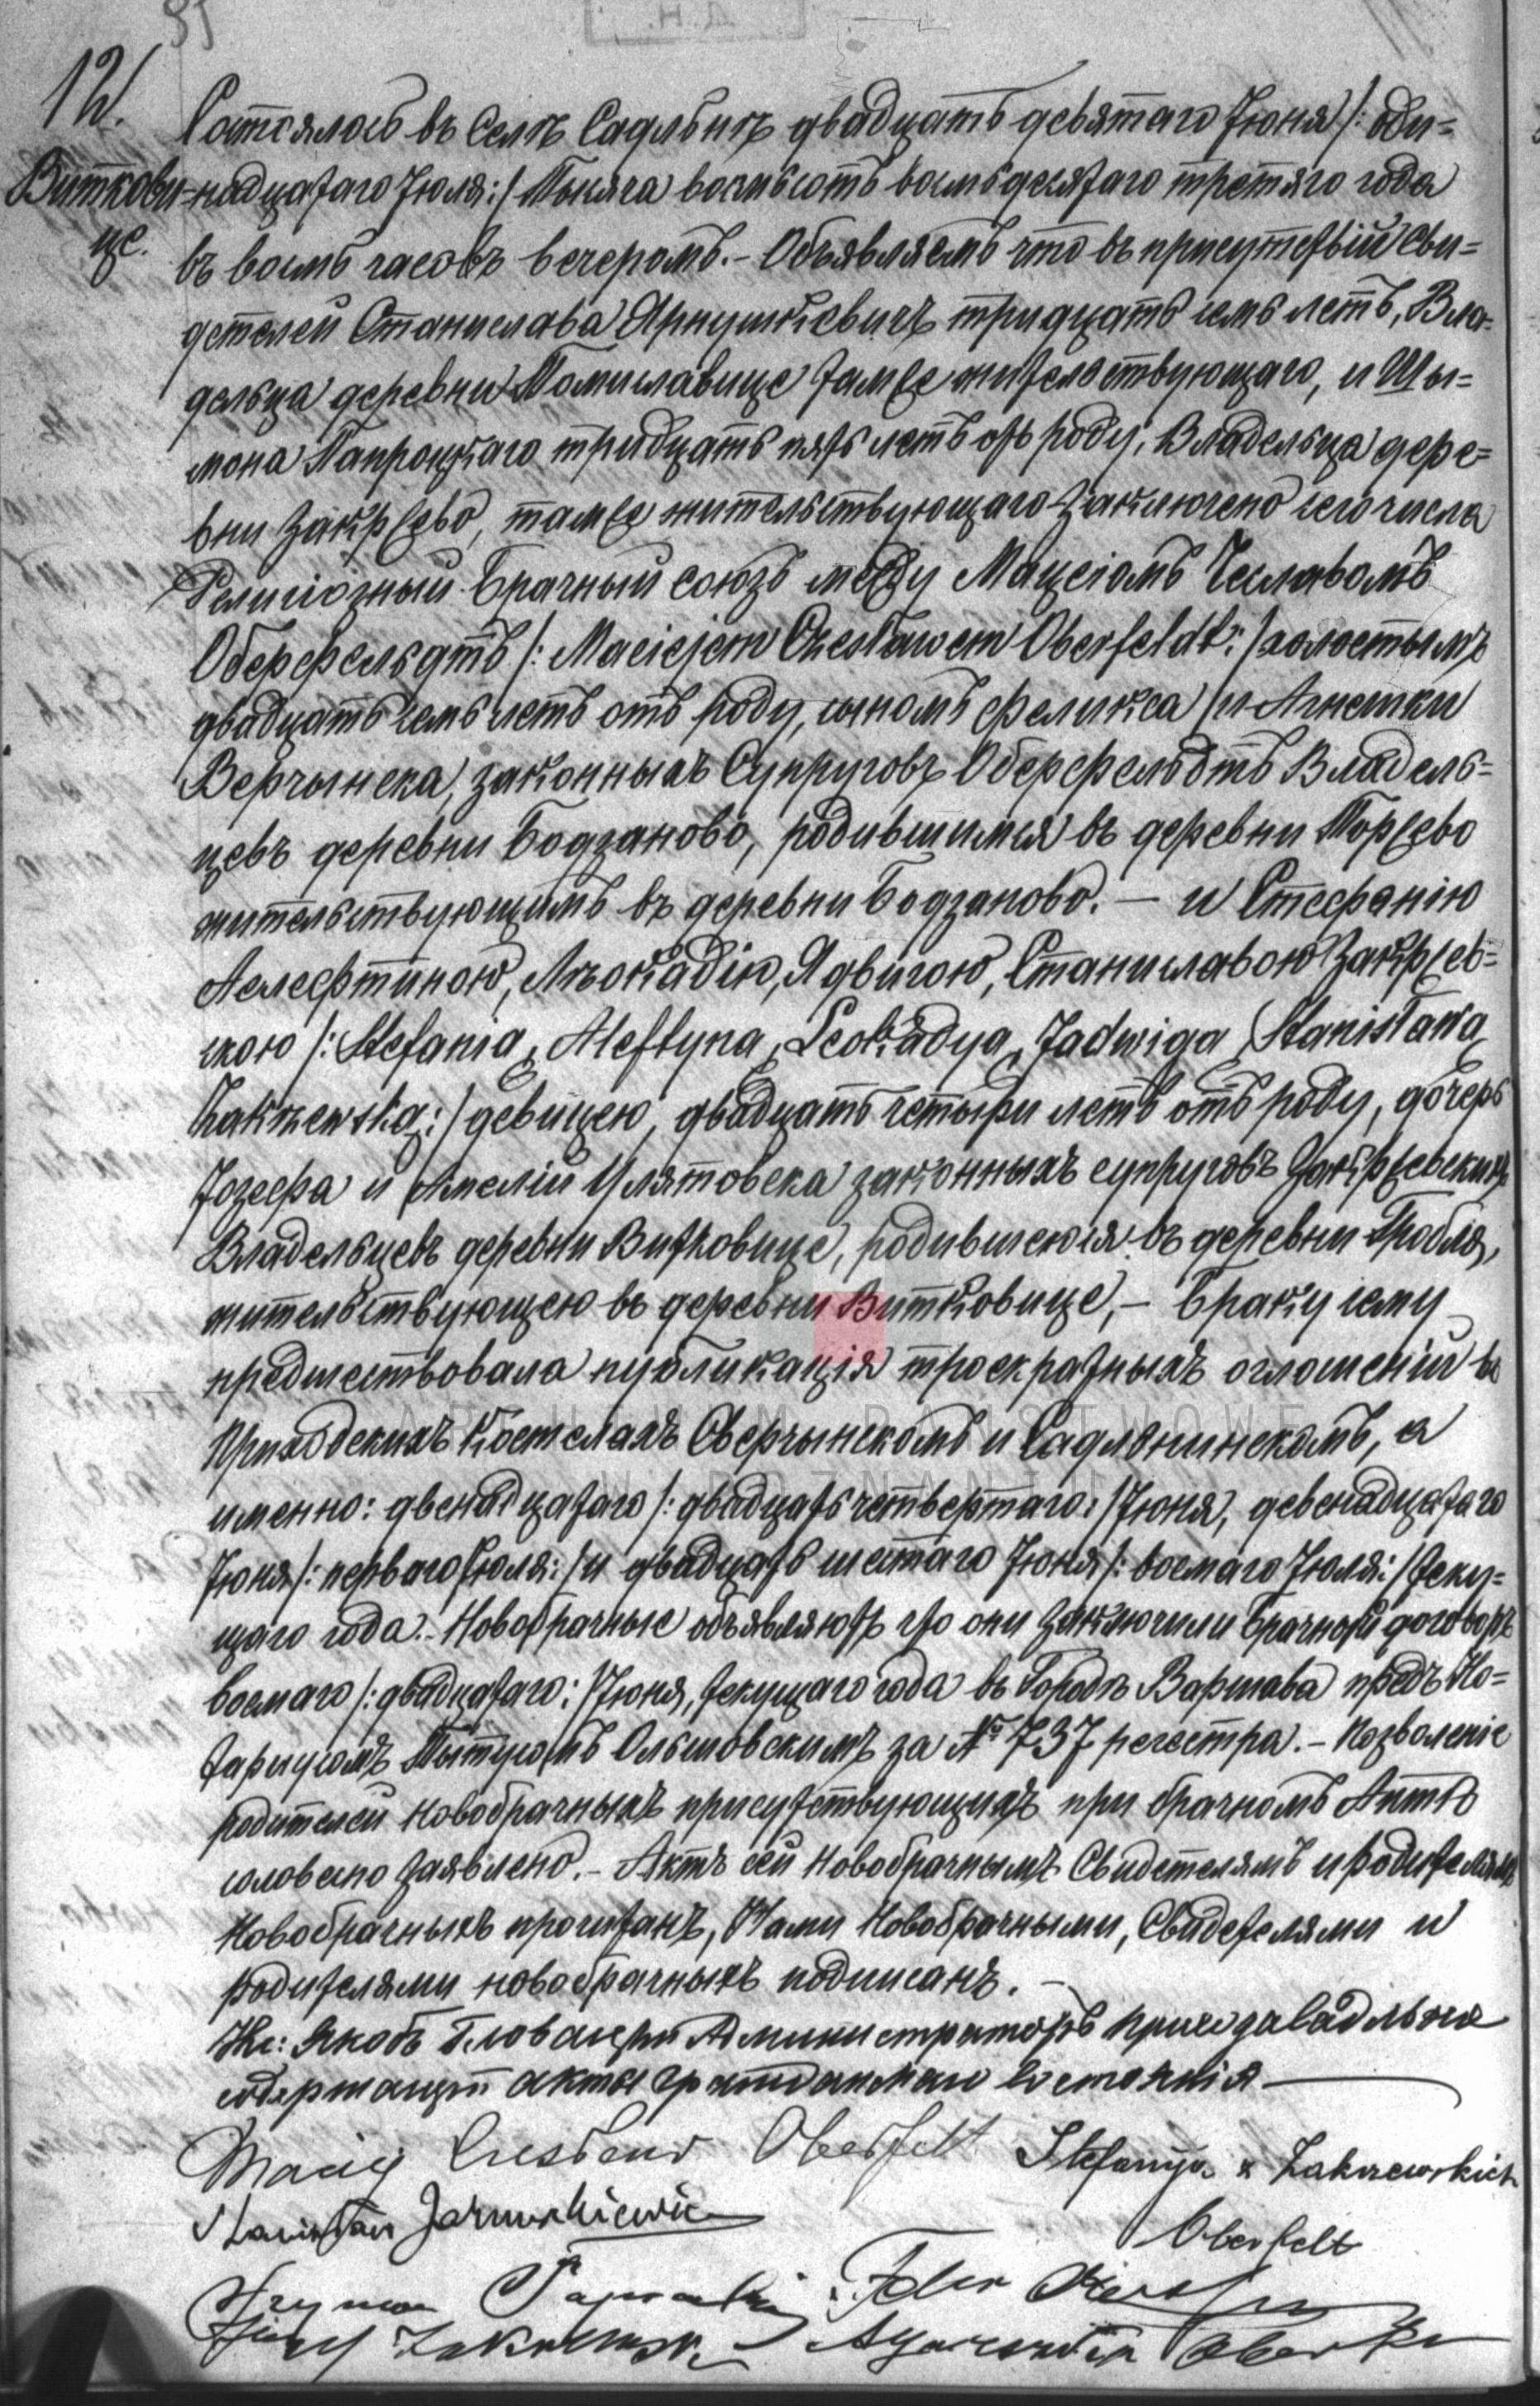 12.
Виткови-
це.
Состоялось въ Селѣ Садльнѣ двадцать девятаго Іюня /: оди=
надцатаго Іюля :/ Тысяча восемьсотъ восемьдесятаго третяго года
въ восмь часовъ вечеромъ. - Объявляемъ что въ присутствій Сви=
детелей Станислава Ярнушкевичъ тридцать семь летъ, Вла=
дельца деревни Томиславице тамже жительствующаго, и Шы=
мона Папроцкаго тридцать пять летъ отъ роду, Владельца дере=
вни Закржево, тамже жительствующаго заключено сего числа
Религіозный Брачный союзъ между Мацеіомъ Чеславомъ
Оберфельдтъ /: Maciejem Czesławem Oberfeldt :/ холостымъ
двадцать семь летъ отъ роду, сыномъ Феликса и Агнешки
Верчынска, законныхъ Супруговъ Оберфельдтъ Владель=
цевъ деревни Бодзаново, родившимся въ деревни Торжево
жительствующимъ въ деревни Бодзаново. — и Стефанію
Алефтиною, Леокадію, Ядвигою, Станиславою Закржев=
скою /: Stefanią, Aleftyną, Leokadyą, Jadwigą Stanisławą
Zakrzewską :/ девицею, двадцать четыри летъ отъ роду, дочерь
Іозефа и Амеліи Улятовска законныхъ супруговъ Закржевскихъ
Владельцевъ деревни Витковице, родившеюся въ деревни Гробля,
жительствующею въ деревни Витковице, — Браку сему
предшествовала публикація троекратныхъ оглошеній въ
Приходскихъ Костелахъ Сверчынскомъ и Садльнинскомъ, а
именно: двенадцатаго /: двадцать четвертаго :/ Іюня, девенадцатаго
Іюня /: перваго Іюля :/ и двадцать шестаго Іюня /: восмаго Іюля :/ теку=
щаго года. - Новобрачные объявляютъ что они заключили брачной договоръ
восмаго /: двадцатаго :/ Іюня, текущаго года въ Городѣ Варшава предъ Но=
таріусомъ Тытусомъ Ольшовскимъ за № 737 регестра. - Позволеніе
родителей Новобрачныхъ присутствующихъ при брачномъ Актѣ
словесно заявлено. - Актъ сей Новобрачнымъ Свидетелямъ и Родителямъ
Новобрачныхъ прочитанъ, Нами Новобрачными, Свидетелями и
родителями новобрачныхъ подписанъ. —
Кс: Якобъ Гловацкій Администраторъ прихода Садльно
содержащій акты гражданскаго состоянія —
ARCHIWUM PAŃSTWOWE
W POZNANIU
Maciej Czesław Oberfelt Stefanija z Zakrzewskich
Stanisław Jarnuszkiewicz
Oberfelt
Szymon Paprocki
Józef Zakrzewski